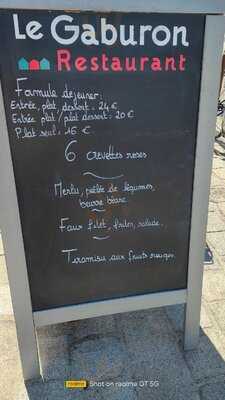 Le Gaburon
Restaurant
Formule déjeuner:
Entrée, plat, dessert: 24 €
Entrée plat / plat dessert: 20 €
Plat seul: 16 €
6 crevettes roses
Merlu, poêlée de légumes,
beurre blanc
Faux filet, frites, salade.
Tiramisu aux fruits rouges
realme Shot on realme GT 5G